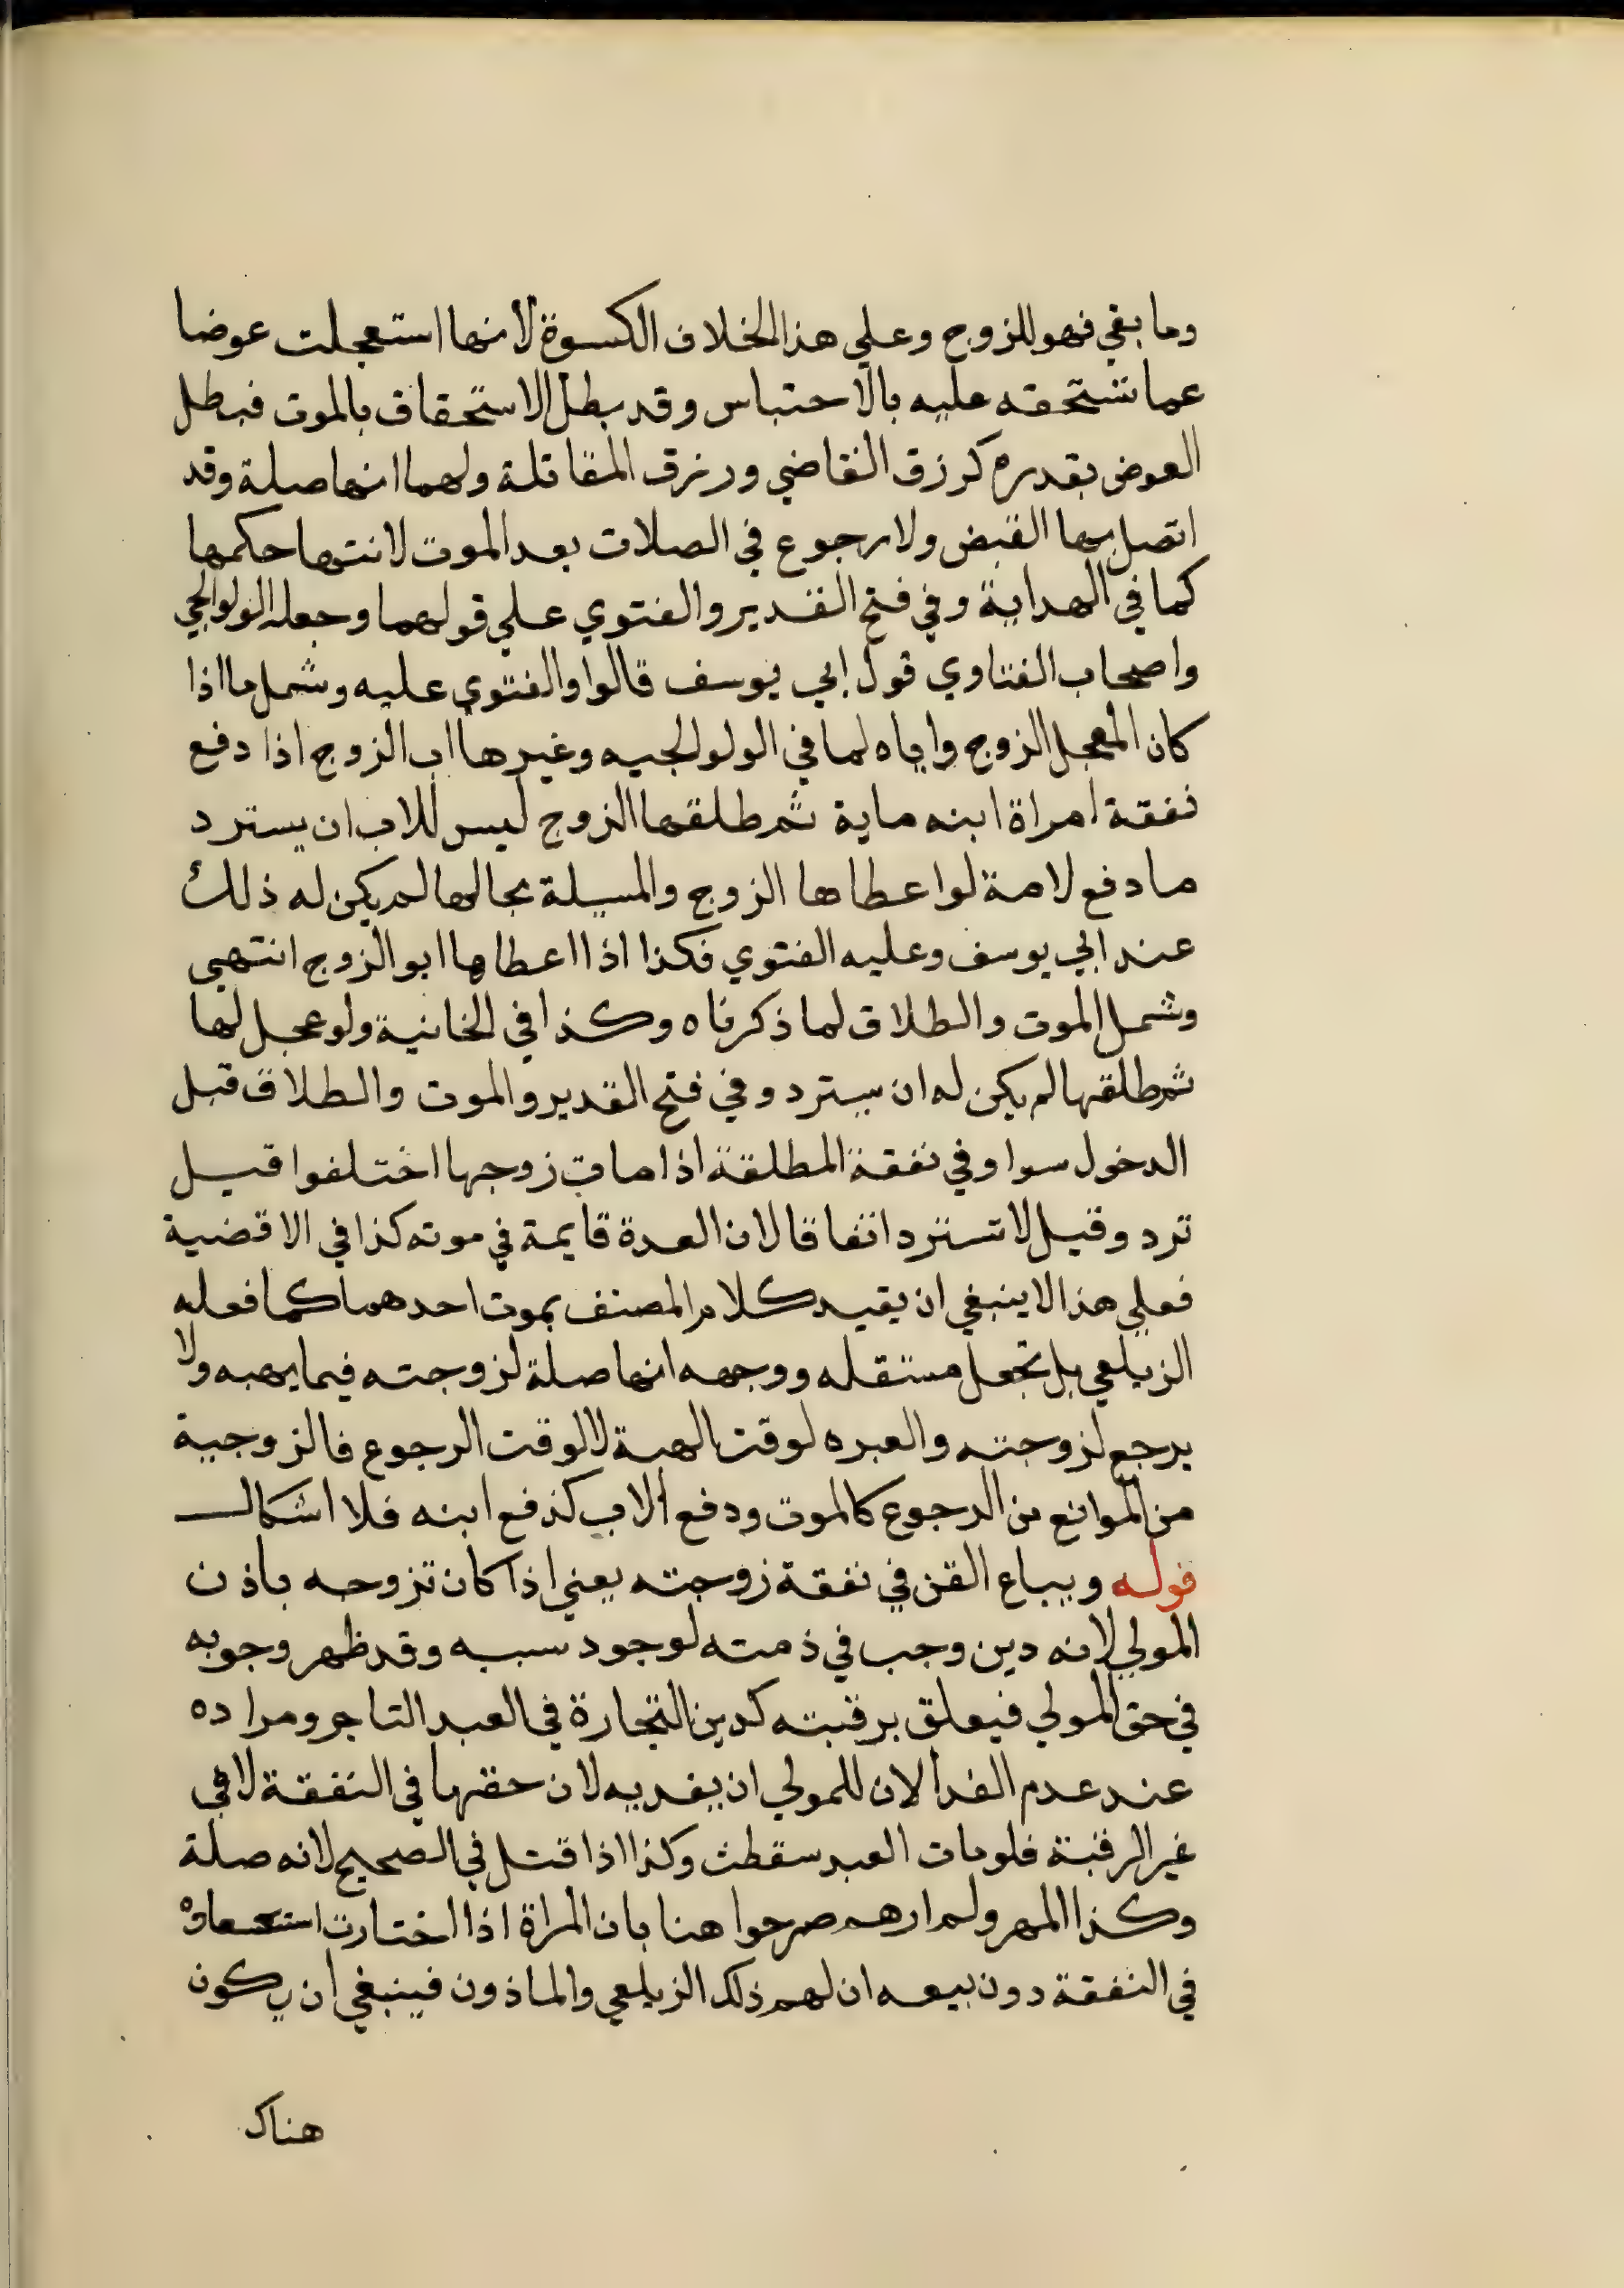 وما بقي فهو للزوج وعلي هذا الخلاف الكسوة لانها استعجلت عوضا
عما تستحقه عليه بالاحتباس وقد بطل الاستحقاق بالموت فبطل
العوض بقدره كرزق القاضي ورزق المقاتلة ولهما انها صلة وقد
اتصل بها القبض ولا رجوع في الصلات بعد الموت لانتها حكمها
كما في الهداية وفي فتح القدير والفتوي علي قولهما وجعله الولوالجي
واصحاب الفتاوي قول ابي يوسف قالوا والفتوي عليه وشمل ما اذا
كان المعجل الزوج واباه لما في الولوالجيه وغيرها اب الزوج اذا دفع
نفقة امراة ابنه ماية ثم طلقها الزوج ليس للاب ان يسترد
ما دفع لامة لو اعطاها الزوج والمسيلة بحالها لم يكن له ذلك
عند ابي يوسف وعليه الفتوي فكذا اذا اعطاها ابو الزوج انتهي
وشمل الموت والطلاق لما ذكرناه وكذا في الخانية ولو عجل لها
ثم طلقها لم يكن له ان يسترد وفي فتح القدير والموت والطلاق قبل
الدخول سوا وفي نفقة المطلقة اذا مات زوجها اختلفوا قيل
ترد وقيل لا تسترد اتفاقا لان العدة قايمة في موته كذا في الاقضية
فعلي هذا لا ينبغي ان يقيد كلام المصنف بموت احدهما كما فعله
الزيلعي بل تجعل مستقله ووجهه انها صلة لزوجته فيما يهبه ولا
يرجع لزوجته والعبره لوقت الهبة لا لوقت الرجوع فالزوجية
من الموانع من الرجوع كالموت ودفع الاب كدفع ابنه فلا اشكال
قوله ويباع القن في نفقة زوجته يعني اذا كان تزوجه باذن
المولي لانه دين وجب في ذمته لوجود سببه وقد ظهر وجوبه
في حق المولي فيعلق برقبته كدين التجارة في العبد التاجر ومراده
عند عدم الفدا لان للمولي ان يفديه لان حقها في النفقة لا في
غير الرقبة فلو مات العبد سقطت وكذا اذا قتل في الصحيح لانه صلة
وكذا المهر ولم ارهم صرحوا هنا بان المراة اذا اختارت استسعاه
في النفقة دون بيعه ان لهم ذلك الزيلعي والماذون فينبغي ان يكون
هناك